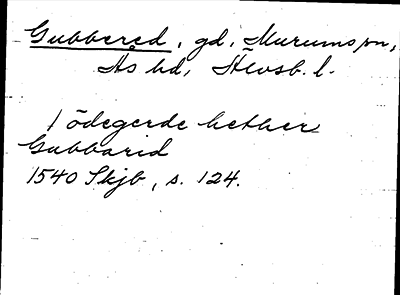 Gubbered, gd, Murums sn,
Ås hd, Älvsb. l.
1 ödegerde hether
Gubbarid
1540 Skjb, s. 124.